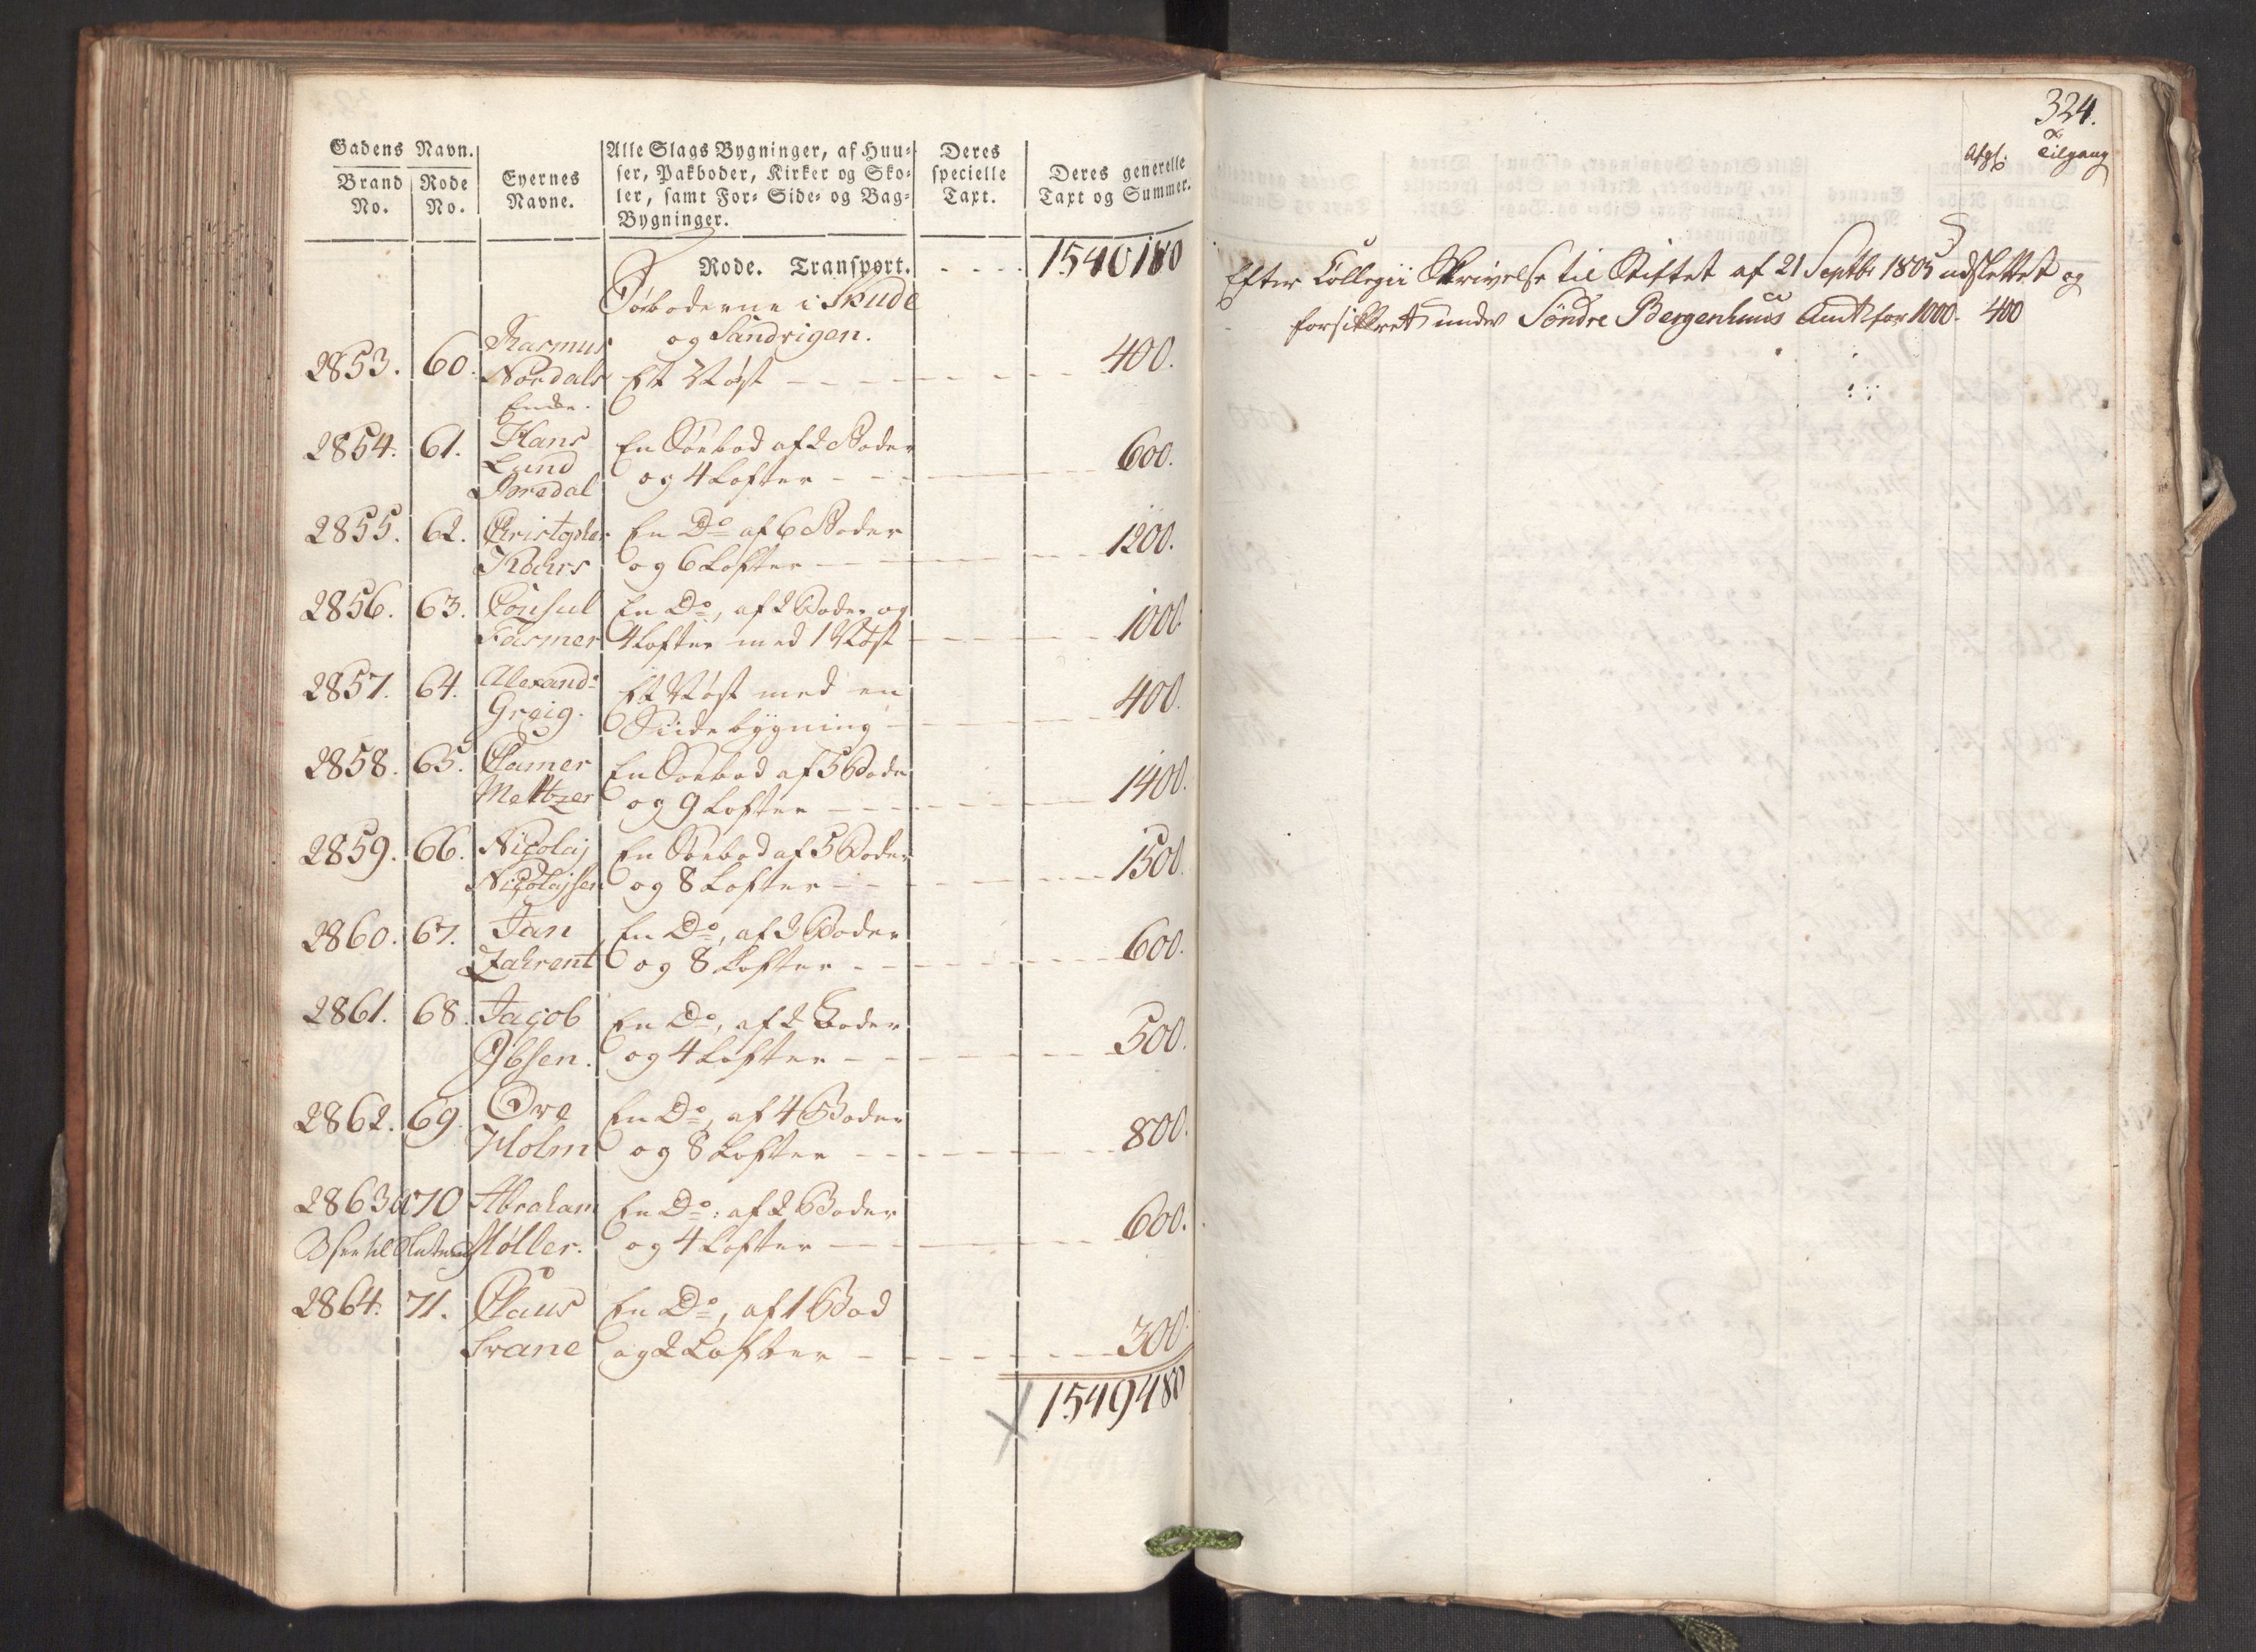 Gadens Navn.
Brand No.
Rode No.
Eyernes Navne.
Alle Slags Bygninger, af Huu-
ser, Pakboder, Kirker og Sko-
ler, samt For- Side- og Bag-
Bygninger.
Deres specielle Taxt.
Deres generelle Taxt og Summer.
Rode. Transport. 1540180
Søeboderne i Skude
og Sandvigen.
2853. 60. Rasmus
Nordahls Et Nøst 400.
Enke.
2854. 61. Hans En Søebod af 2 Boder
Lund og 4 Lofter 600.
Boredal
2855. 62. Christopher En Do af 6 Boder
Kahrs og 6 Lofter 1200.
2856. 63. Consul En Do, af 2 Boder og
Fasmer 4 Lofter med 1 Nøst 1000
2857. 64. Alexandr Et Nøst med en
Greig. Siidebygning 400.
2858. 65. Clamer En Søebod af 5 Boder
Meltzer og 9 Lofter 1400.
2859. 66. Nicolaj En Søebod af 5 Boder
Nicolajsen og 8 Lofter 1500.
2860. 67. Jan En Do, af 2 Boder
Zahrent og 8 Lofter 600.
2861. 68. Jacob En Do, af 2 Boder
Ibsen. og 4 Lofter 500.
2862. 69. Ove En Do, af 4 Boder
Holm og 8 Lofter 800.
2863 a 70 Abraham En Do: af 2 Boder
B see til Slutning Møller. og 4 Lofter 600.
2864. 71. Claus En Do, af 1 Bod
Svane og 2 Lofter 300.
1549480
324.
Afgl: Tilgang
Efter Collegii Skrivelse til Stiftet af 21 Septbr 1805 udslettet og
forsikkret under Söndre Bergenhuus Amt for 1000. 400